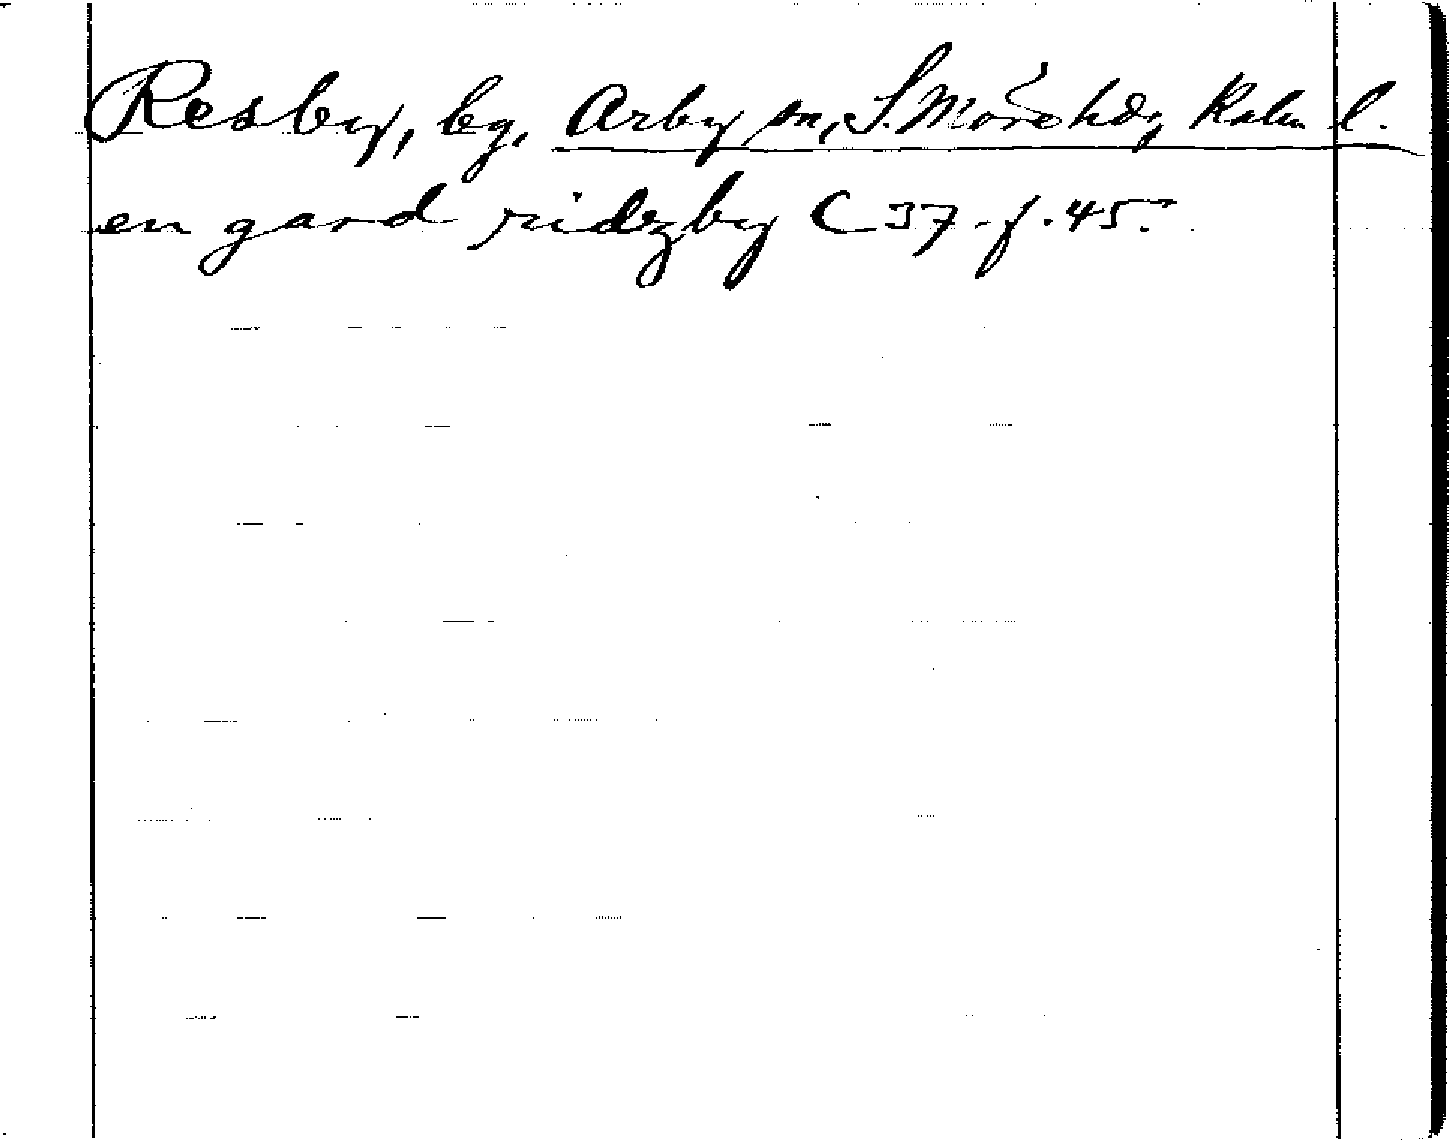 Resby, by, Arby sn, S. Möre hd, Kalm l.
en gard ridzby C 37 f. 45.